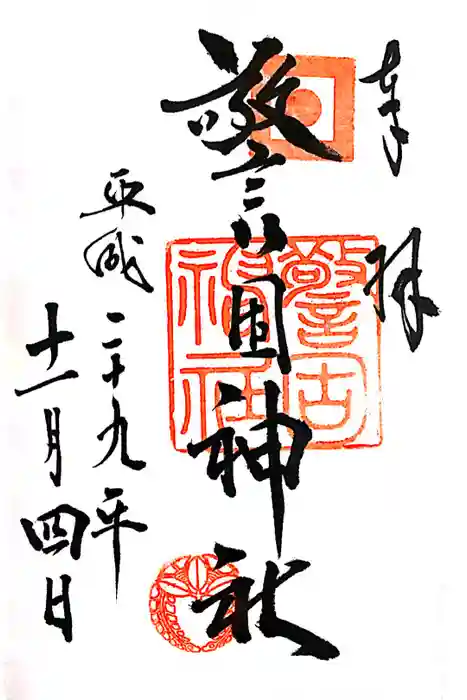 奉拝
警固神社
警固神社
平成二十九年
十一月四日